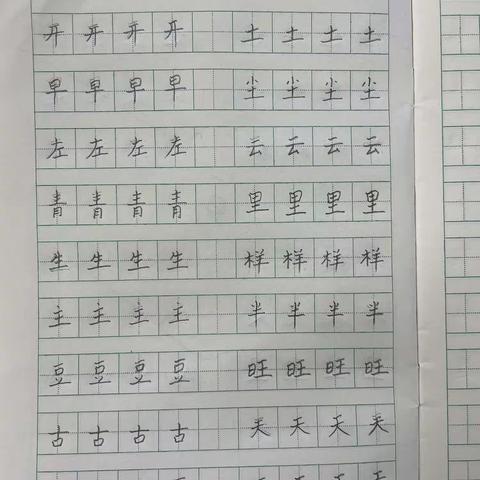 开开开开 土土土土
早早早早 尘尘尘尘
左左左左 云云云云
青青青青 里里里里
生生生生 样样样样
主主主主 半半半半
豆豆豆豆 旺旺旺旺
古古古古 天天天天